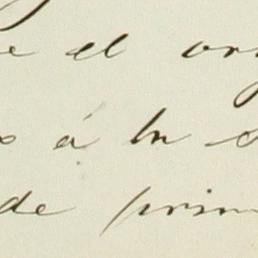 e el or
s á la c
de prim